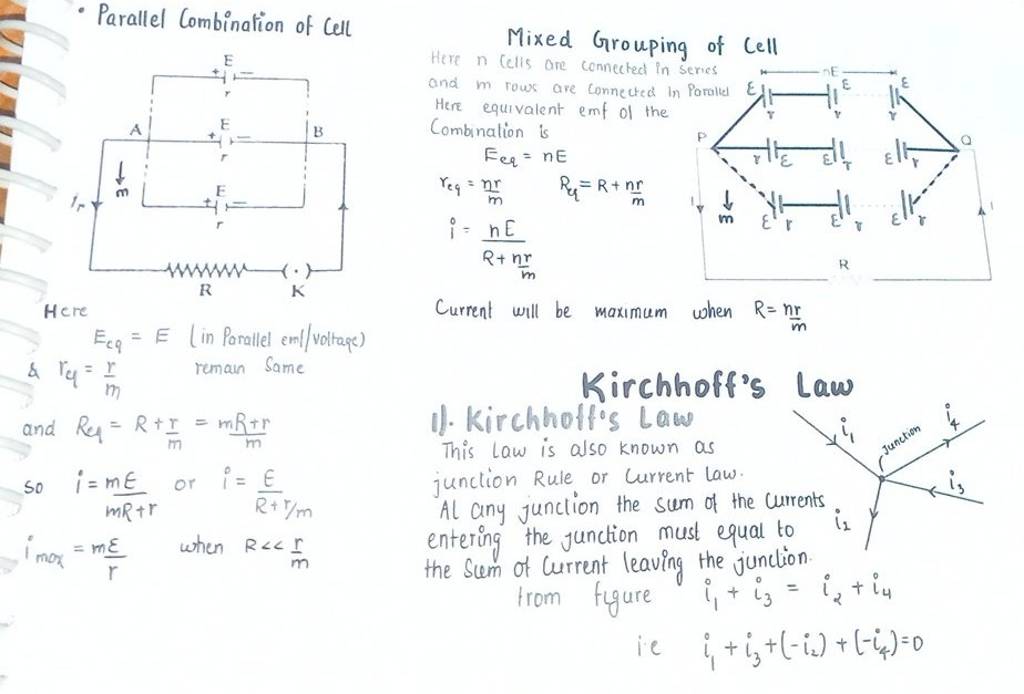 • Parallel Combination of Cell
E
+ —
r
A
E
+ —
B
r
m
E
+ —
r
R
K
Here
Eeq = E (in Parallel emf/voltage)
& req = r/m remain Same
and Req = R + r/m = mR+r/m
so i = mE/mR+r or i = E/R+r/m
i max = mE/r when R<< r/m
Mixed Grouping of Cell
Here n Cells are connected in Series
and m rows are Connected In Parallel
Here equivalent emf of the
Combination is
Eeq = nE
req = nr/m Req = R + nr/m
i = nE/R + nr/m
nE
ε ε ε
r r r
P Q
r ε ε r ε r
m
ε r ε r ε r
I I
R
Current will be maximum when R = nr/m
Kirchhoff's Law
1). Kirchhoff's Law
This Law is also known as
junction Rule or Current law.
At any junction the sum of the Currents
entering the junction must equal to
the Sum of Current leaving the junction.
from figure i1 + i3 = i2 + i4
i.e i1 + i3 + (-i2) + (-i4) = 0
i1
Junction
i4
i3
i2